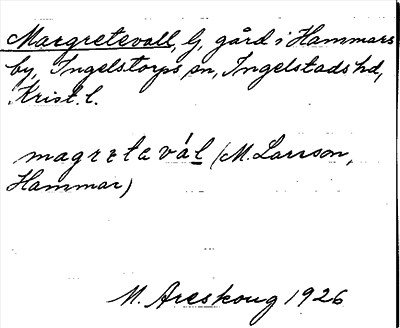 Margretevall, G, gård i Hammars
by, Ingelstorps sn, Ingelstads hd,
Krist. l.
magretavál (M. Larsson,
Hammar)
M. Areskoug 1926